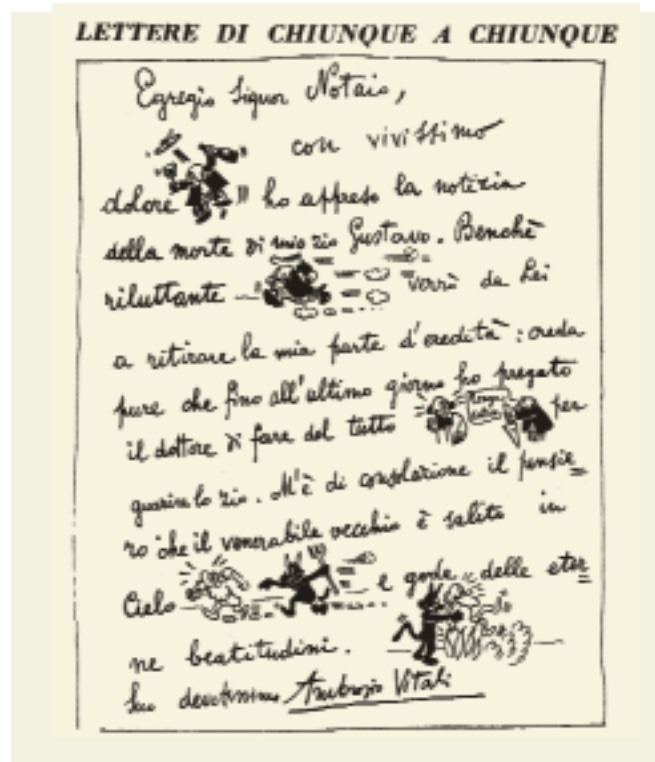 LETTERE DI CHIUNQUE A CHIUNQUE
Egregio Signor Notaio,
con vivissimo
dolore ho appreso la notizia
della morte di mio zio Gustavo. Benchè
riluttante verrò da Lei
a ritirare la mia parte d'eredità: creda
pure che fino all'ultimo giorno ho pregato
il dottore di fare del tutto per
guarire lo zio. M'è di consolazione il pensie=
ro che il venerabile vecchio è salito in
Cielo e gode delle eter=
ne beatitudini.
Suo devotissimo Ambrogio Vitali